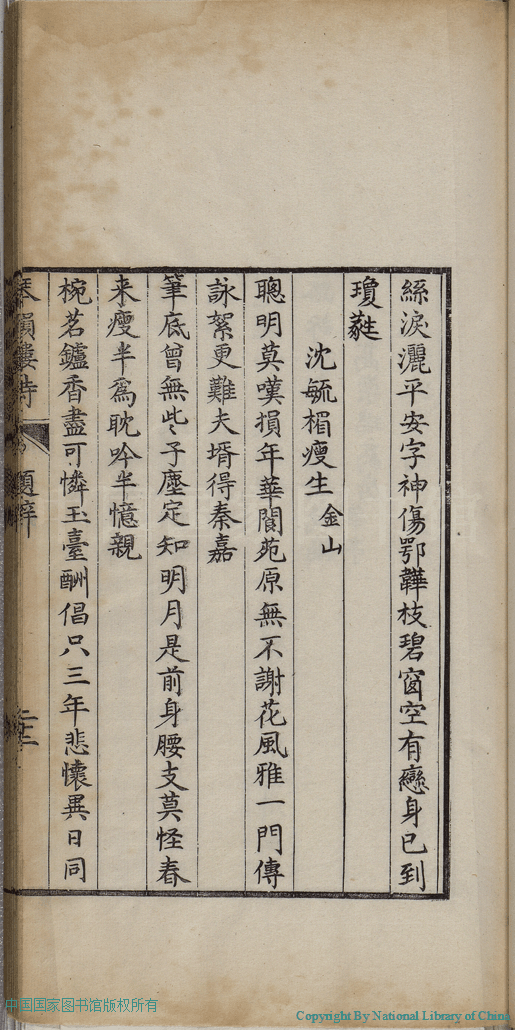 絲淚灑平安字神傷鄂韡枝碧窗空有戀身已到
瓊蕤
沈毓楣瘦生 金山
聰明莫嘆損年華閬苑原無不謝花風雅一門傳
詠絮更難夫壻得秦嘉
筆底曾無些子塵定知明月是前身腰支莫怪春
来瘦半為耽吟半憶親
椀茗鑪香盡可憐玉臺酬倡只三年悲懷異日同
琴韻 題辞
中国国家图书馆版权所有
Copyright By National Library of China